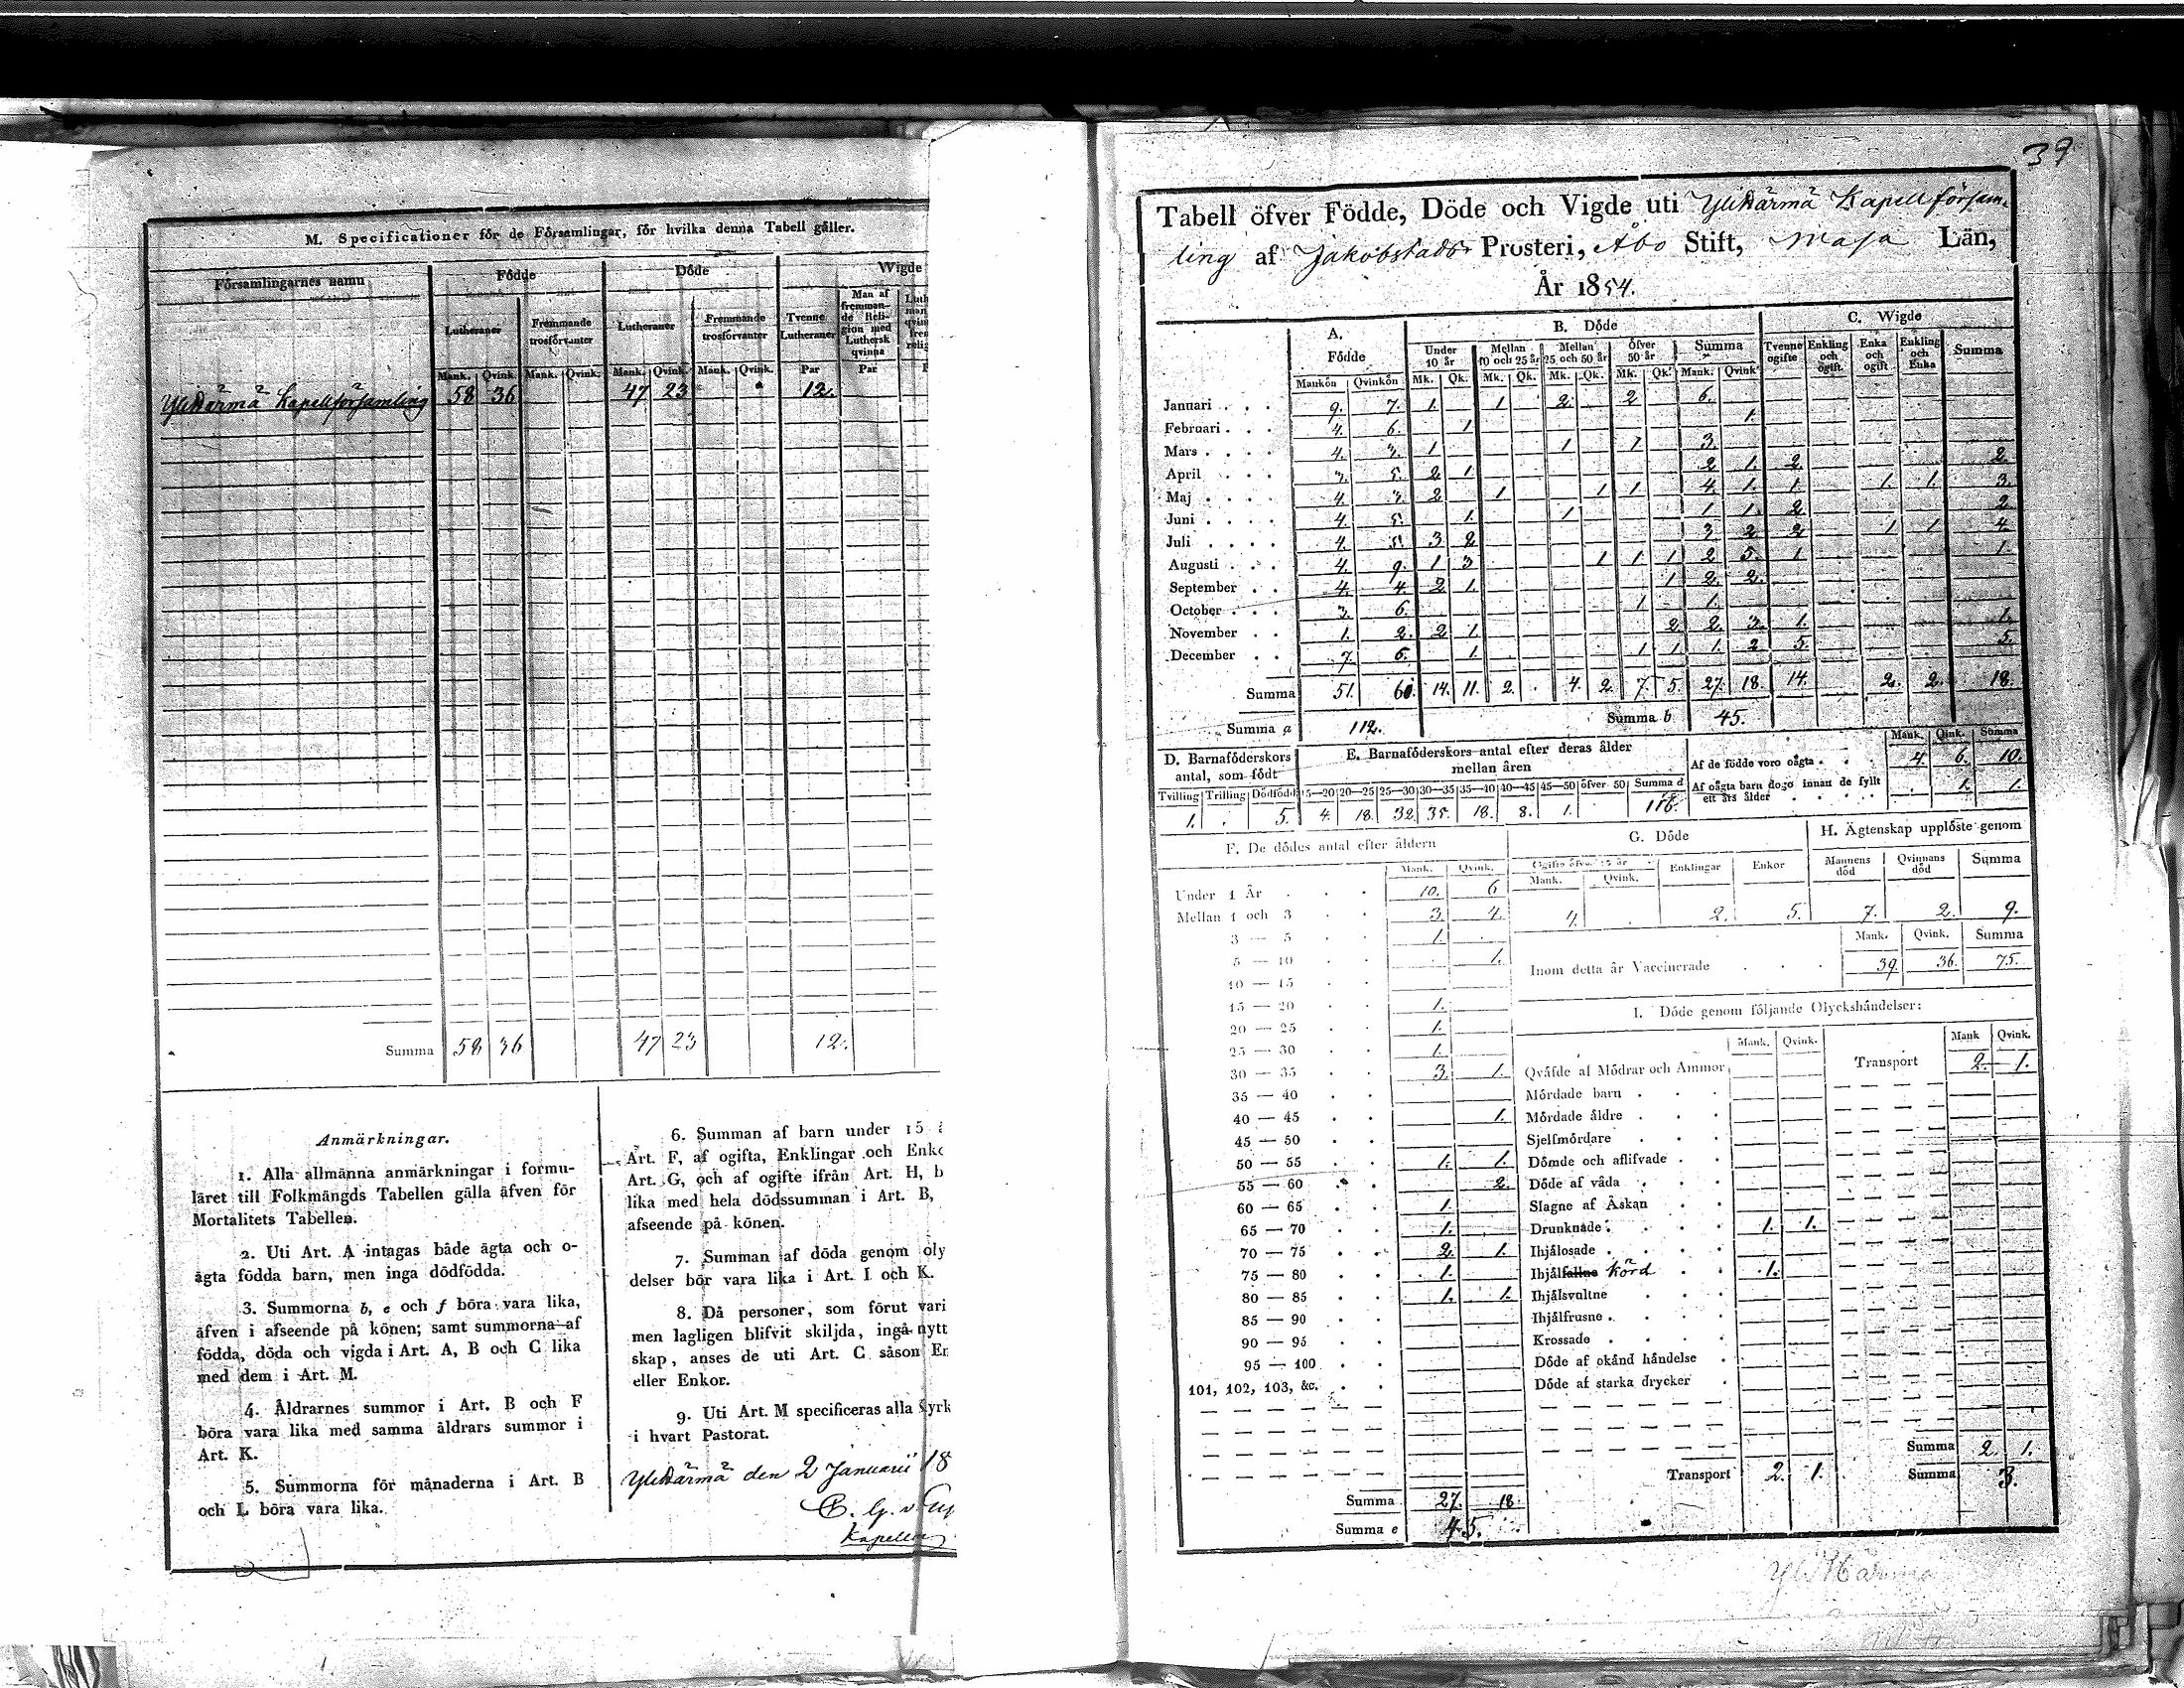 M. Specificationer för de Församlingar, för hvilka denna Tabell gäller.
Församlingarnes namn Födde Döde Wigde
Lutheraner Främmande trosförvanter Lutheraner Främmande trosförvanter Tvenne Lutheraner Man af fremmande Religion med Luthersk qvinna
Mank. Qvink. Mank. Qvink. Mank. Qvink. Mank. Qvink. Par Par
Ylihärmä Kapellförsamling 58 36 47 23 12.
Summa 58 36 47 23 12.
Anmärkningar.
1. Alla allmänna anmärkningar i formu-
läret till Folkmängds Tabellen gälla äfven för
Mortalitets Tabellen.
2. Uti Art. A intagas både ägta och o-
ägta födda barn, men inga dödfödda.
3. Summorna b, e och f böra vara lika,
äfven i afseende på könen; samt summorna af
födda, döda och vigda i Art. A, B och C lika
med dem i Art. M.
4. Åldrarnes summor i Art. B och F
böra vara lika med samma åldrars summor i
Art. K.
5. Summorna för månaderna i Art. B
och L böra vara lika.
6. Summan af barn under 15
Art. F, af ogifta, Enklingar och Enk
Art. G, och af ogifte ifrån Art. H, b
lika med hela dödssumman i Art. B,
afseende på könen.
7. Summan af döda genom oly
delser bör vara lika i Art. I och K.
8. Då personer, som förut vari
men lagligen blifvit skiljda, ingå nytt
skap, anses de uti Art. C såson En
eller Enkor.
9. Uti Art. M specificeras alla Kyrk
i hvart Pastorat.
Ylihärmä den 2 Januarii 18
Kapellan
39
Tabell öfver Födde, Döde och Vigde uti Ylihärmä Kapellförsam-
ling af Jakobstads Prosteri, Åbo Stift, Wasa Län,
År 1854.
A. Födde B. Döde C. Wigde
Under 10 år Mellan 10 och 25 år Mellan 25 och 50 år Öfver 50 år Summa Tvenne ogifte Enkling och ogift. Enka och ogift. Enkling och Enka Summa
Mankön Qvinkön Mk. Qk. Mk. Qk. Mk. Qk. Mk. Qk. Mank. Qvink.
Januari 9. 7. 1. 1 2. 2 6.
Februari 4. 6. 1 1.
Mars 4. 3. 1 1 1 3.
April 3. 5. 2 1. 2 1. 2. 2.
Maj 4. 3. 2 1 1 1. 4. 1. 1. 1. 1. 3.
Juni 4. 5. 1. 1 1 1. 2 2
Juli 4. 5. 3 2 3 2 2 1 1 4.
Augusti 4. 9. 1 3 1 1. 1 2 5. 1 1.
September 4. 4. 2 1. 1 2. 2.
October 3. 6. 1 1.
November 1. 2. 2 1. 2 2. 3. 1. 1.
December 7. 6. 1. 1 1. 1. 2 5. 5.
Summa 51. 14. 11. 2. 4. 2. 7. 5. 27. 18. 14. 2. 2. 18.
Summa a 112. Summa b 45.
D. Barnaföderskors antal, som födt
Tvilling Trilling Dödfödd
1. 5.
E. Barnaföderskors antal efter deras ålder mellan åren
15—20 20—25 25—30 30—35 35—40 40—45 45—50 öfver 50 Summa d
4. 18. 32. 35. 18. 8. 1. 116.
Mank. Qink. Summa
Af de födde voro oägta 4. 6. 10.
Af oägta barn dogo innan de fyllt ett års ålder 1. 1.
F. De dödes antal efter åldern
Mank. Qvink.
Under 1 År 10. 6
Mellan 1 och 3 3. 4.
3 — 5 1.
5 — 10 1.
10 — 15
15 — 20 1.
20 — 25 1.
25 — 30 1.
30 — 35 3. 1.
35 — 40
40 — 45 1.
45 — 50
50 — 55 1. 1.
55 — 60 2.
60 — 65 1.
65 — 70 1.
70 — 75 2. 1.
75 — 80 1.
80 — 85 1. 1.
85 — 90
90 — 95
95 — 100
101, 102, 103, &c.
Summa 27. 18
Summa e 45.
G. Döde
Ogifte öfver 15 år Enklingar Enkor
Mank. Qvink.
4. 2. 5.
H. Ägtenskap upplöste genom
Mannens död Qvinnans död Summa
7. 2. 9.
Mank. Qvink. Summa
Inom detta år Vaccinerade 39. 36. 75.
I. Döde genom följande Olyckshändelser:
Mank. Qvink. Mank Qvink.
Qväfde af Mödrar och Ammor Transport 2. 1.
Mördade barn
Mördade äldre
Sjelfmördare
Dömde och aflifvade
Döde af våda
Slagne af Åskan
Drunknade 1. 1.
Ihjälosade
Ihjälfallne körd 1.
Ihjälsvultne
Ihjälfrusne
Krossade
Döde af okänd händelse
Döde af starka drycker
Summa 2. 1.
Transport 2. 1. Summa 3.
Yli Härmä